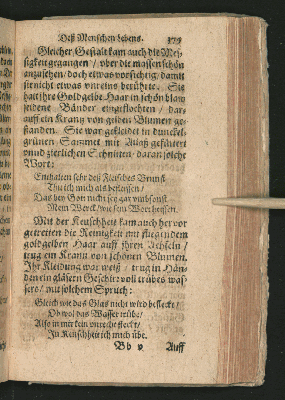 Deß Menschen lebens.
Gleicher Gestalt kam auch die Mes-
sigkeit gegangen / vber die massen schön
anzusehen / doch etwas vorsichtig / damit
sie nicht etwas vnreins berührte. Sie
hatt ihre Goldgelbe Haar in schön blaw
seidene Bänder eingeflochten / dar-
auff ein Krantz von gelben Blumen ge-
standen. Sie war gekleidet in dunckel
grünen Sammet mit Atlaß gefütert
vnnd zierlichen Schnitten / daran solche
Wort:
Enthalten sehr deß Fleisches Brunst
Thu ich mich als befleissen /
Das bey Gott nicht sey gar vmbsonst
Mein Werck / wie sein Wort heissen.
Mit der Keuschheit kam auch her vor
getretten die Reinigkeit mit fliegendem
goldgelben Haar auff ihren Achseln /
trug ein Krantz von schönen Blumen.
Ihr Kleidung war weiß / trug in Hän-
den ein gläsern Geschirr voll trübes was-
sers / mit solchem Spruch:
Gleich wie das Glas nicht wird befleckt /
Ob wol das Wasser trübe /
Also in mir kein vnrecht steckt /
In Keuschheit ich mich übe.
Bb v Auff